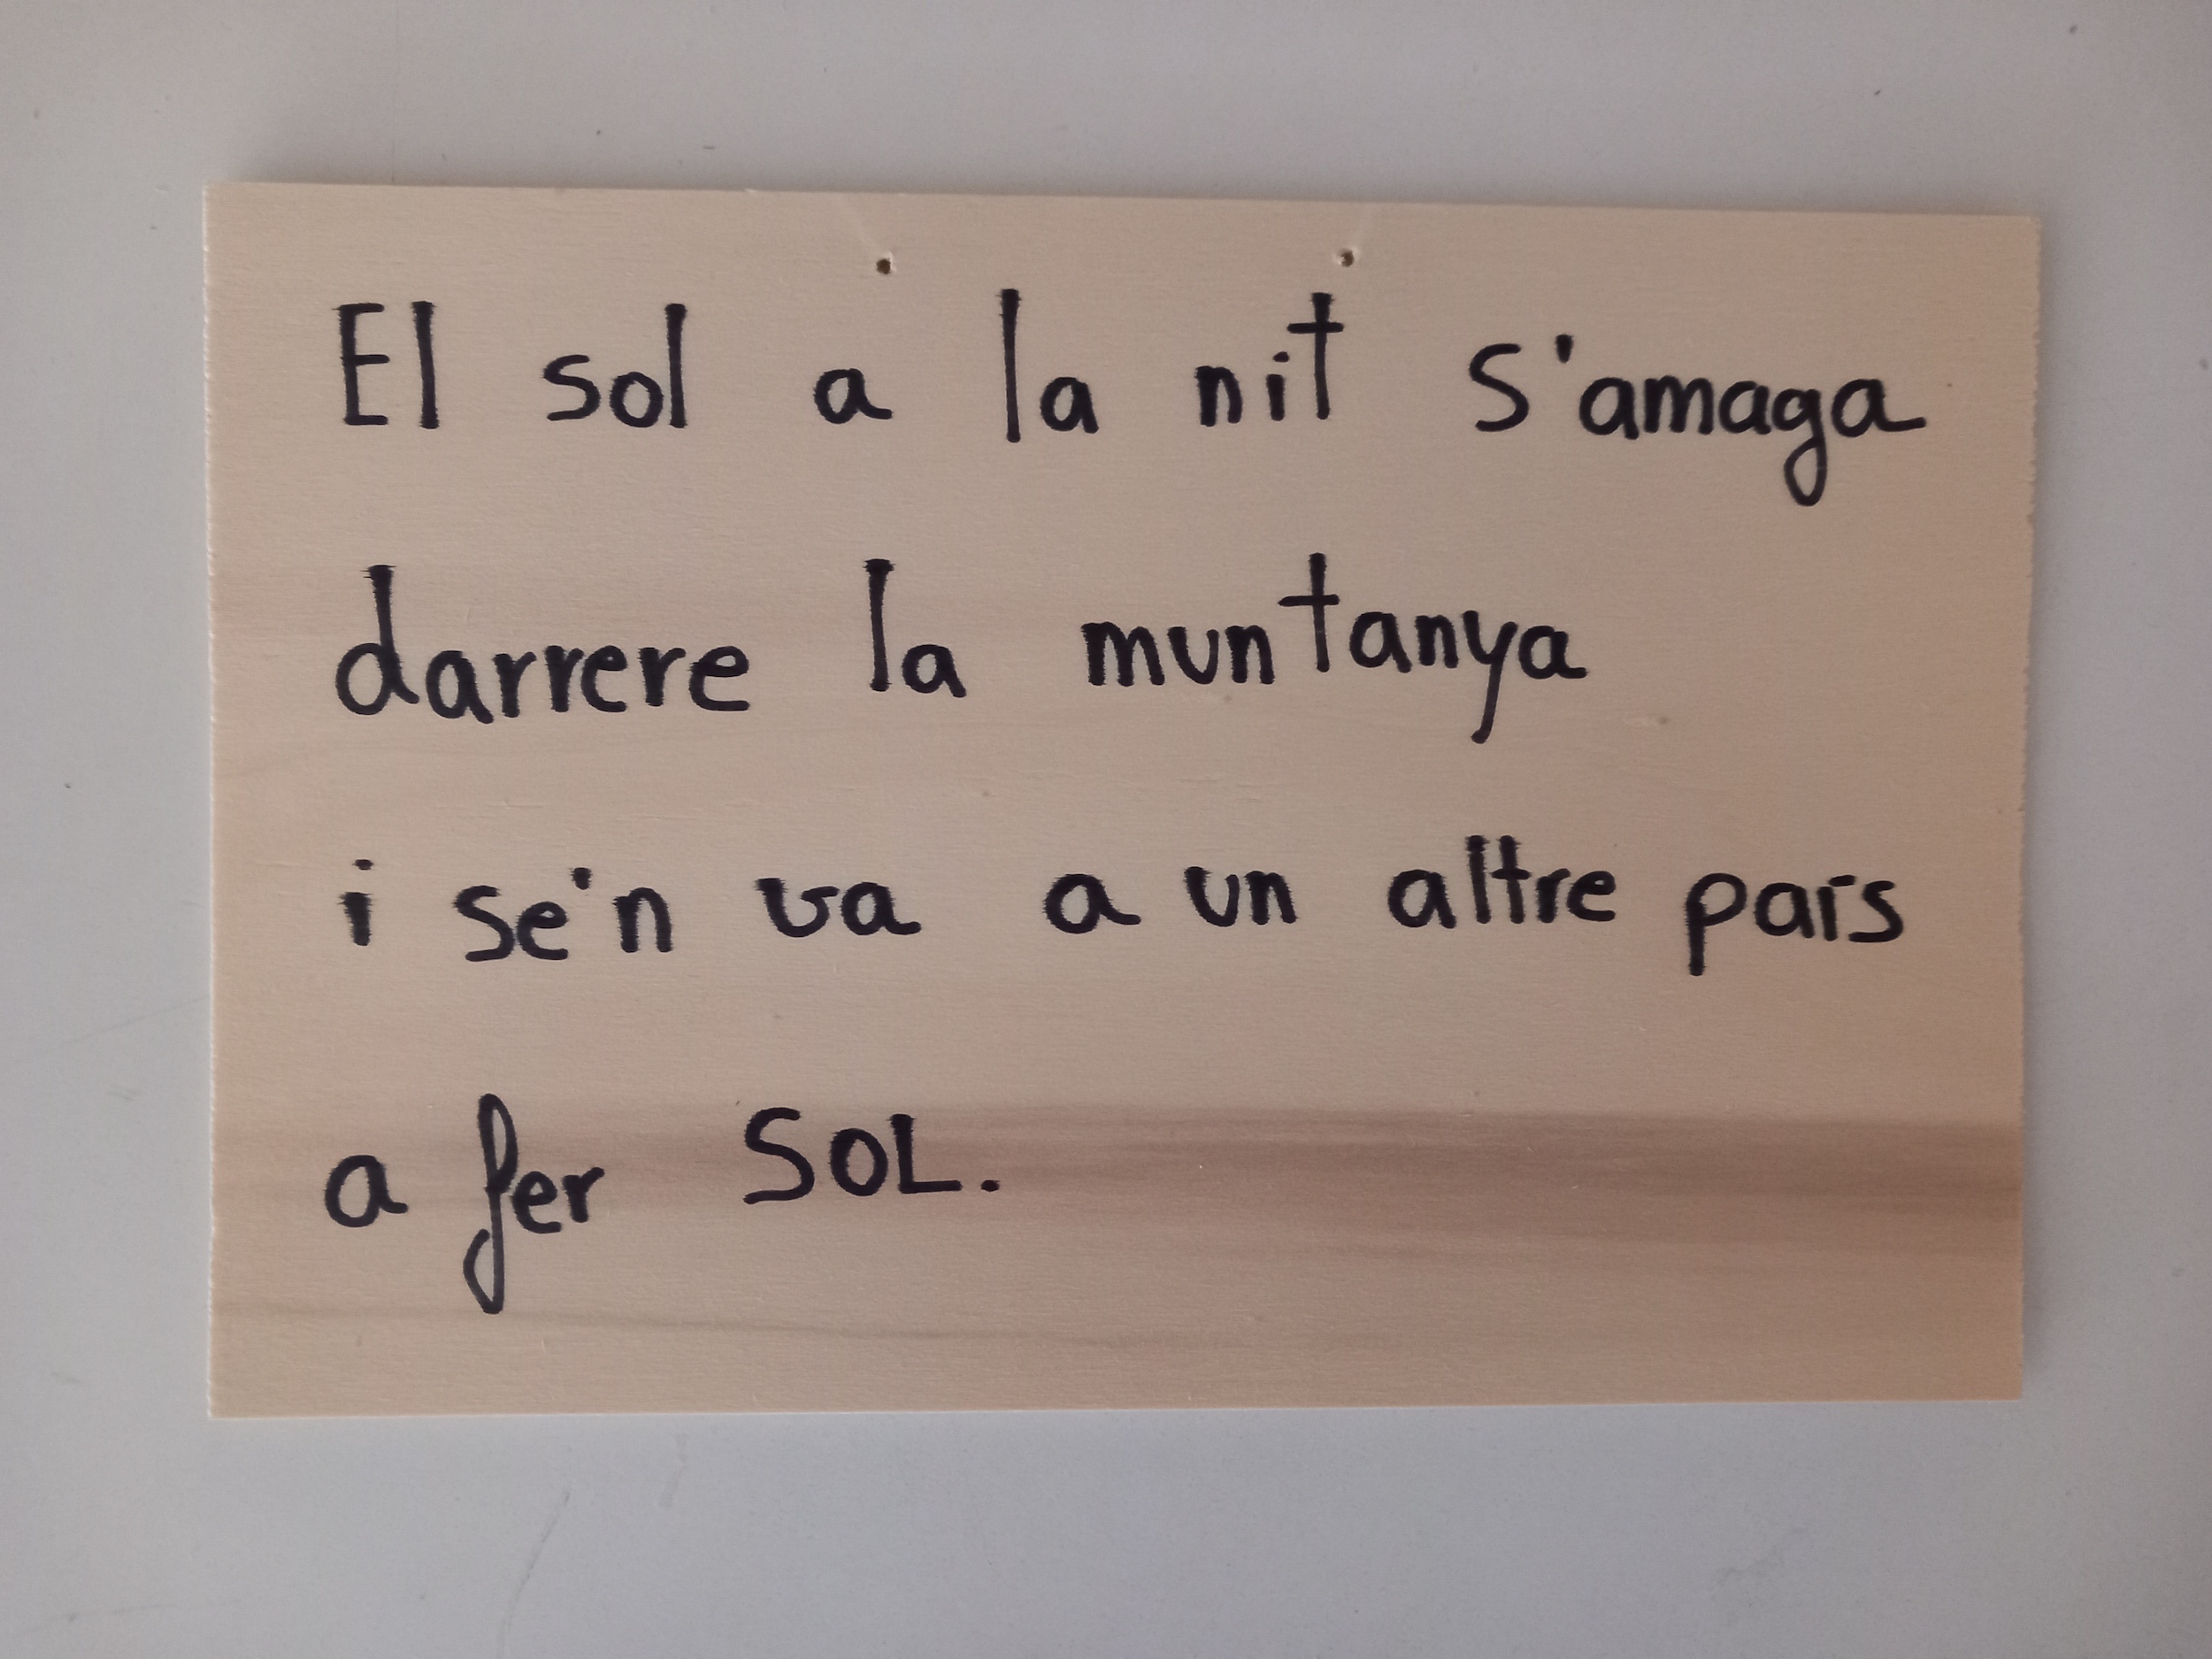 El sol a la nit s'amaga
darrere la muntanya
i se'n va a un altre país
a fer SOL.